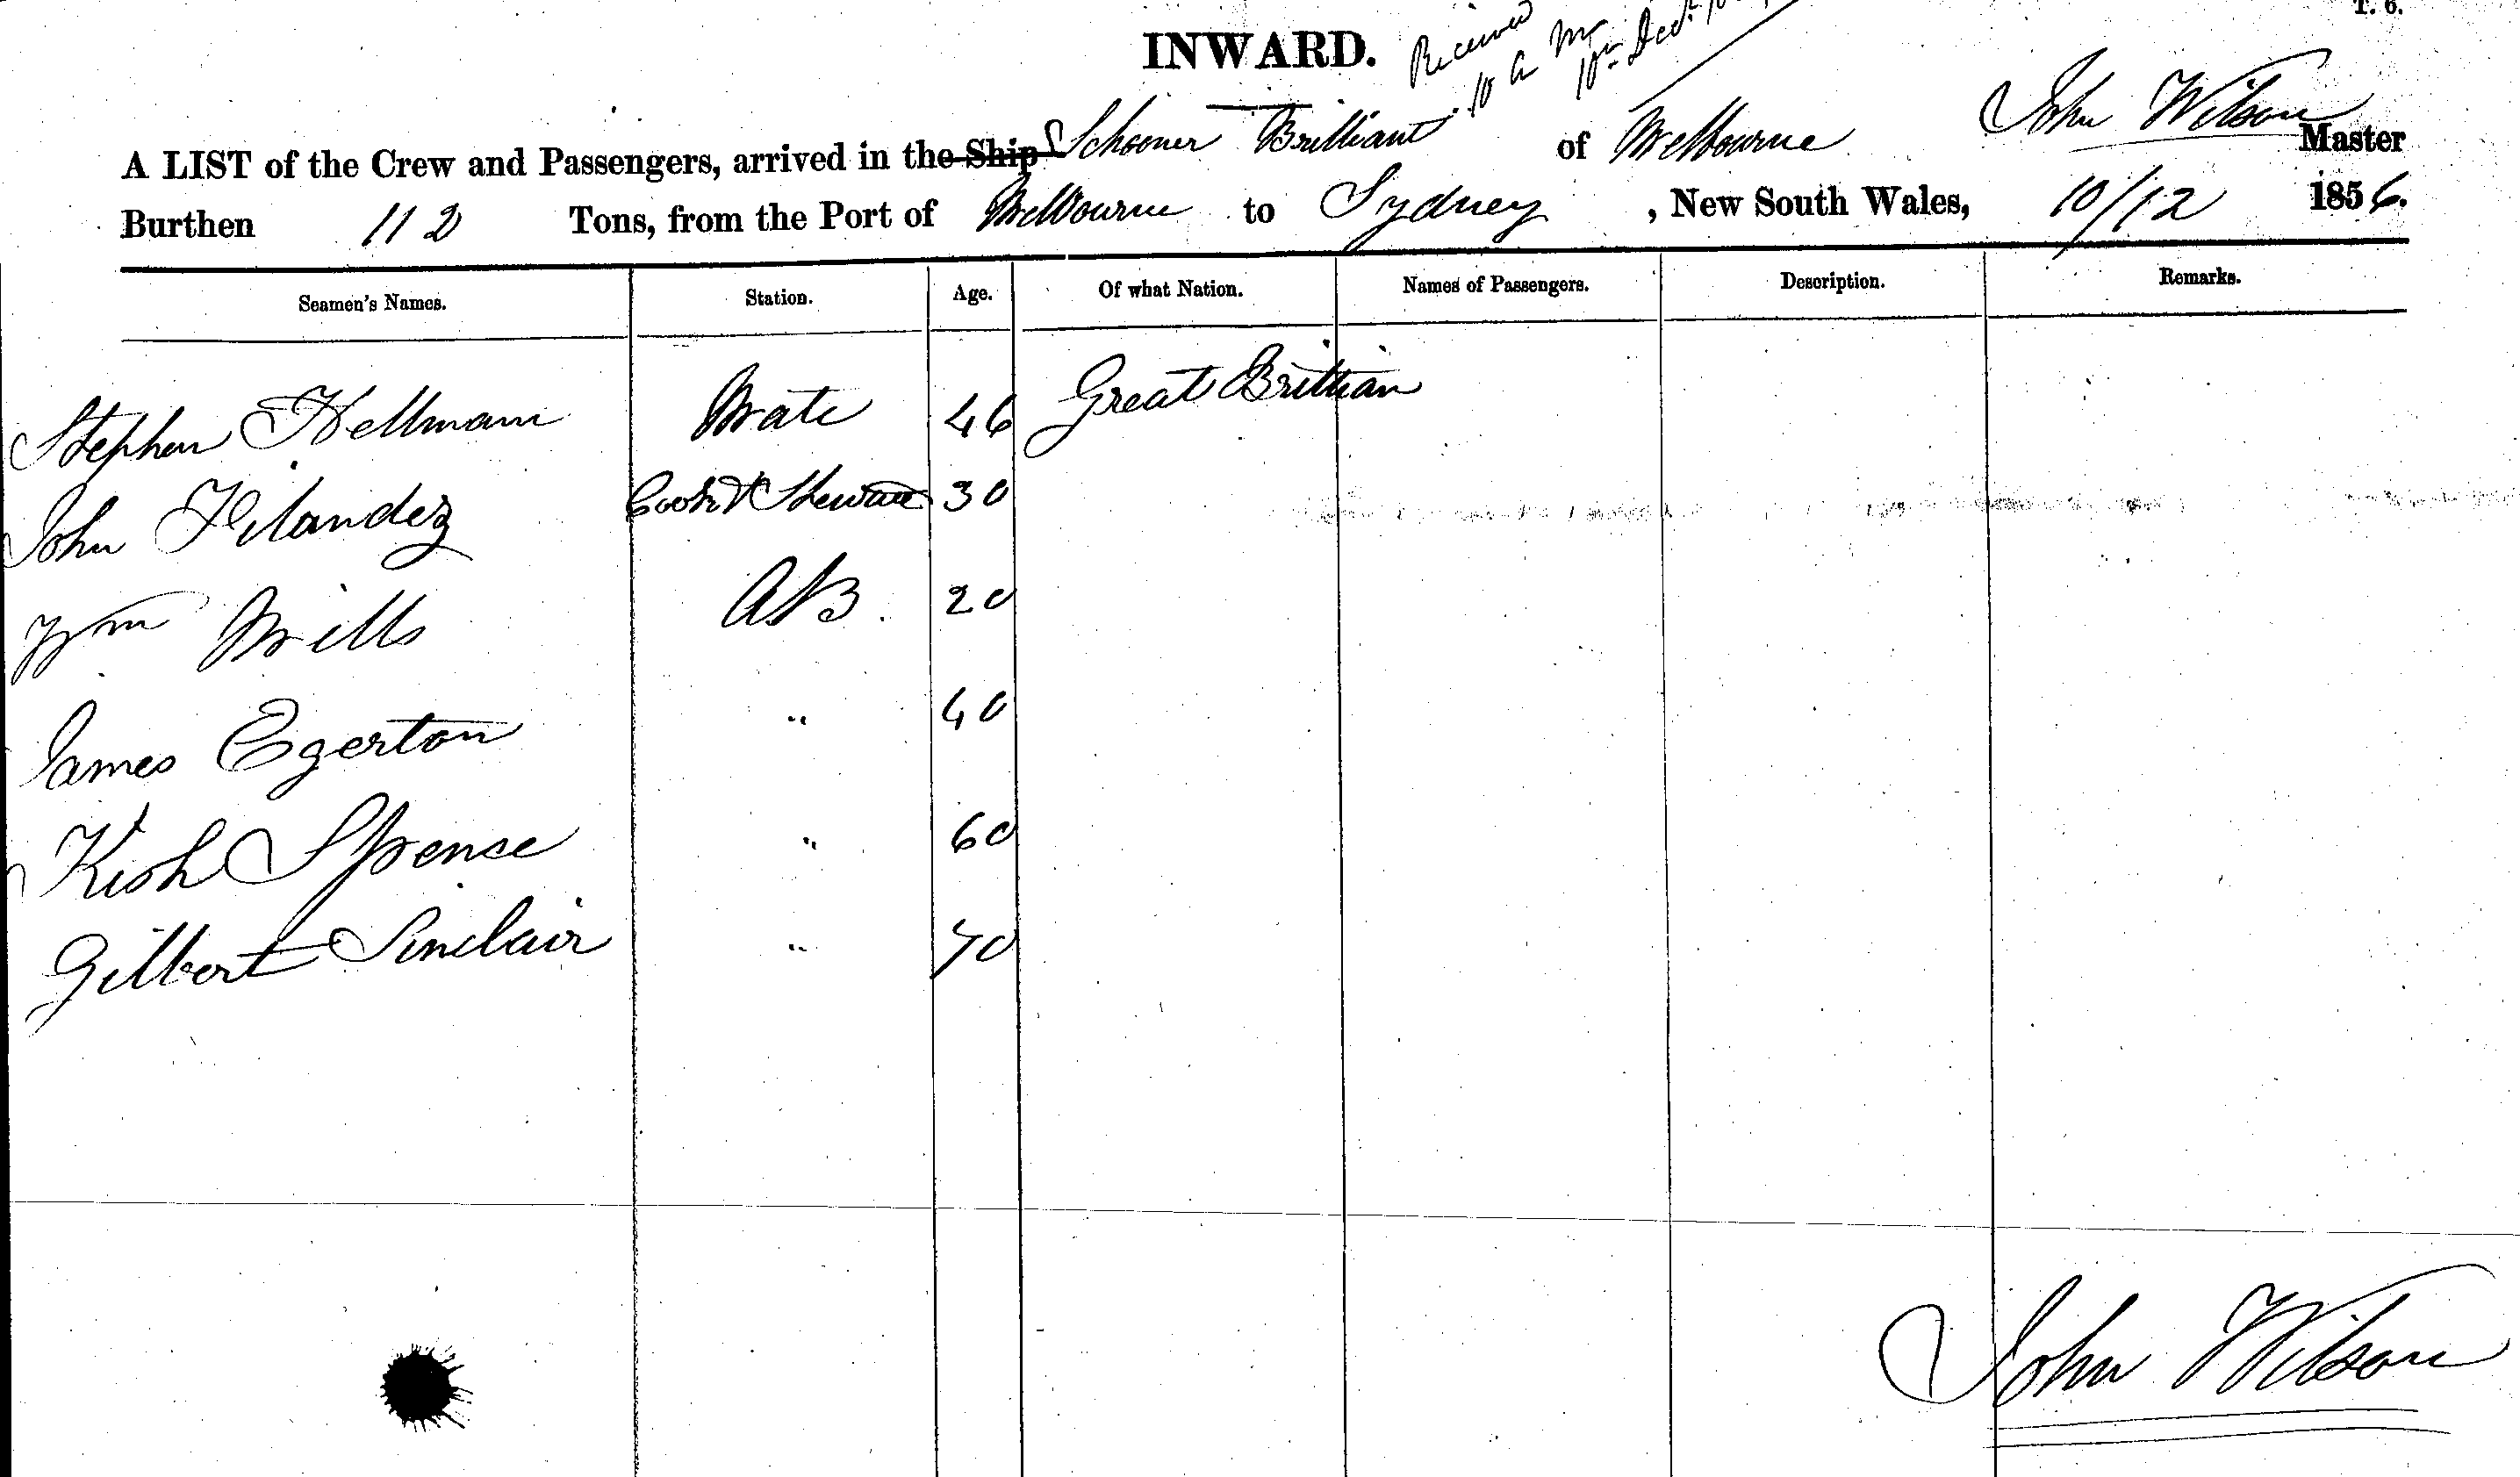 T. 6.
INWARD.
Received
10 A M
10th Decr
A LIST of the Crew and Passengers, arrived in the Ship Schooner Brilliant of Melbourne John Wilson Master
Burthen 112 Tons, from the Port of Melbourne to Sydney, New South Wales, 10/12 1856.
Seamen's Names. Station. Age. Of what Nation. Names of Passengers. Description. Remarks.
Stephen Hellmam Mate 46 Great Brittian
John Filandez Cook & Steward 30
Wm Mills AB. 20
James Egerton " 40
Spense " 60
Gilbert Sinclair " 70
John Wilson